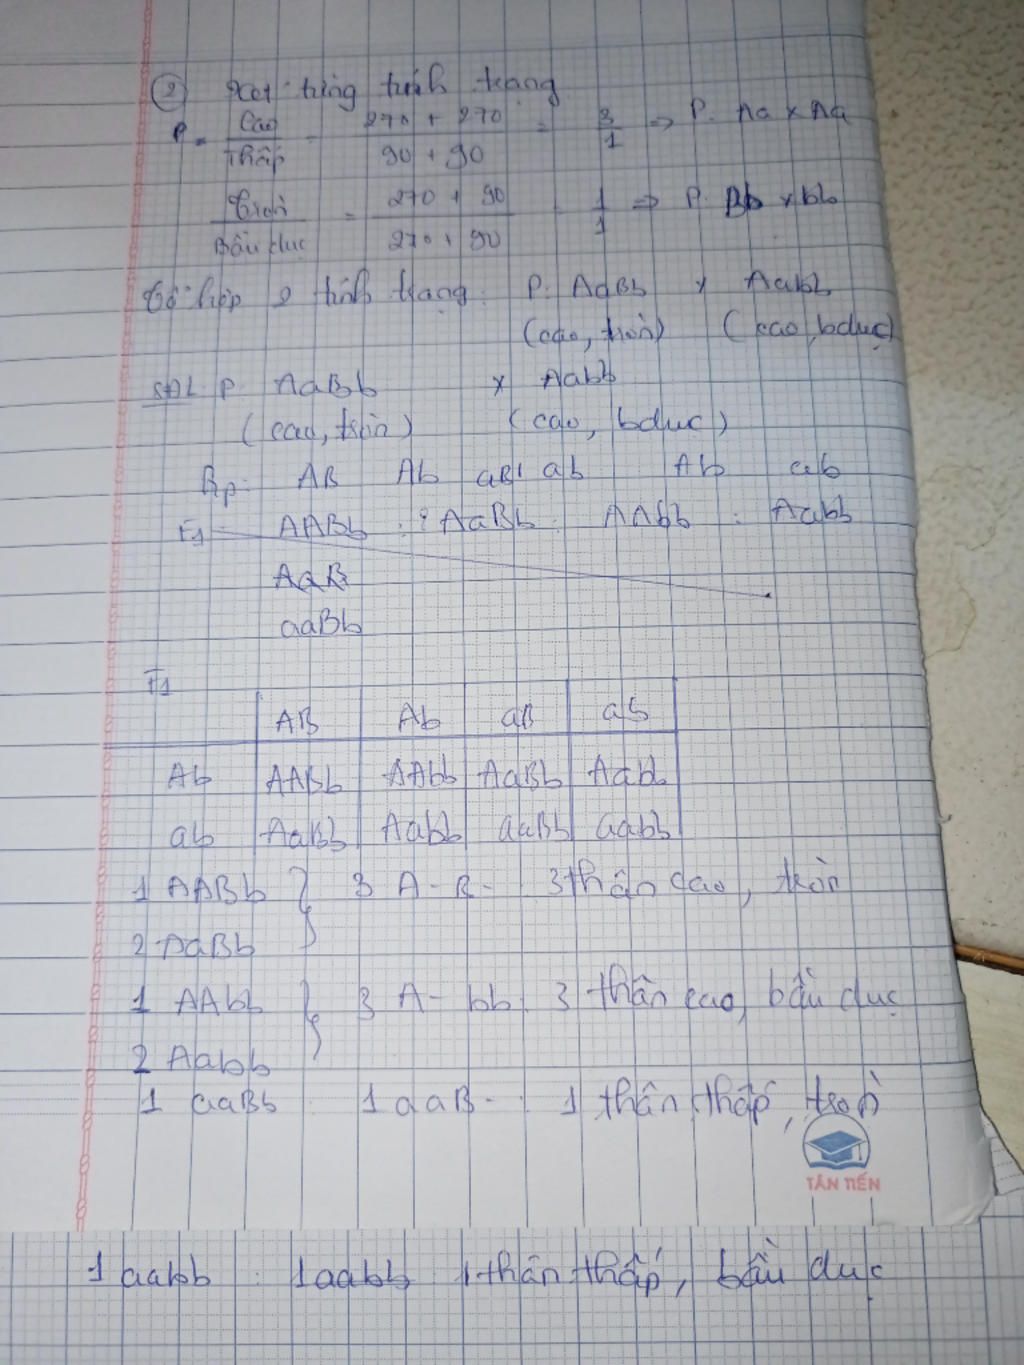 ② Xét từng tính trạng
P = Cao / Thấp = 270 + 270 / 90 + 90 = 3/1 => P. Aa x Aa
Tròn / Bầu dục = 270 + 90 / 270 + 90 = 1/1 => P. Bb x bb
Tổ hợp 2 tính trạng: P: AaBb x Aabb
(cao, tròn) (cao, bdục)
SĐL P. AaBb x Aabb
(cao, tròn) (cao, bdục)
Gp: AB Ab aB ab Ab ab
F1 AABb : 2 AaBb : AAbb : Aabb
AaB
aaBb
F1
AB Ab aB ab
Ab AABb AAbb AaBb Aabb
ab AaBb Aabb aaBb aabb
1 AABb } 3 A-B- 3 thân cao, tròn
2 AaBb
1 AAbb } 3 A-bb 3 thân cao, bầu dục
2 Aabb
1 aaBb 1 aaB- 1 thân thấp, tròn
TÂN TIẾN
1 aabb : 1 aabb 1 thân thấp, bầu dục